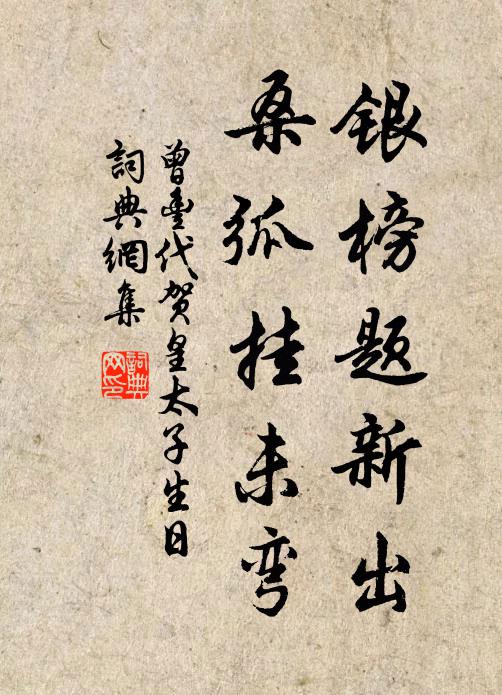 银榜题新出
桑弧挂未弯
曾豊代贺皇太子生日
詞典網集
詞典网印